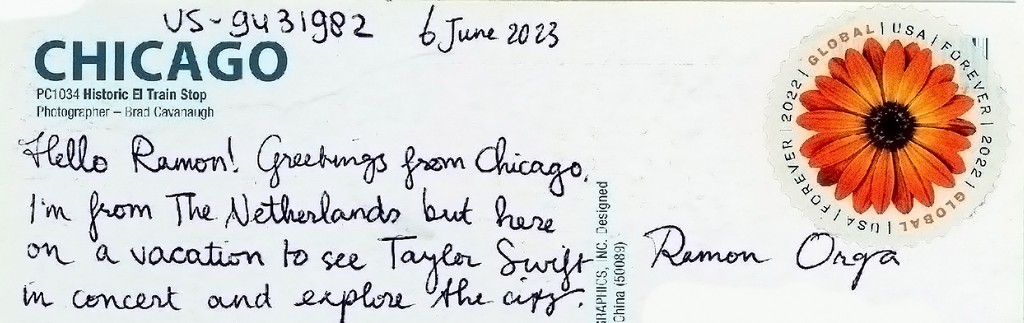 US-9431982 6 June 2023
CHICAGO
PC1034 Historic El Train Stop
Photographer – Brad Cavanaugh
Hello Ramon! Greetings from Chicago.
I'm from The Netherlands but here
on a vacation to see Taylor Swift
in concert and explore the city.
RAPHICS, INC. Designed
China (50089)
GLOBAL | USA | FOREVER | 2022 | GLOBAL | USA | FOREVER | 2022 |
Ramon Orga